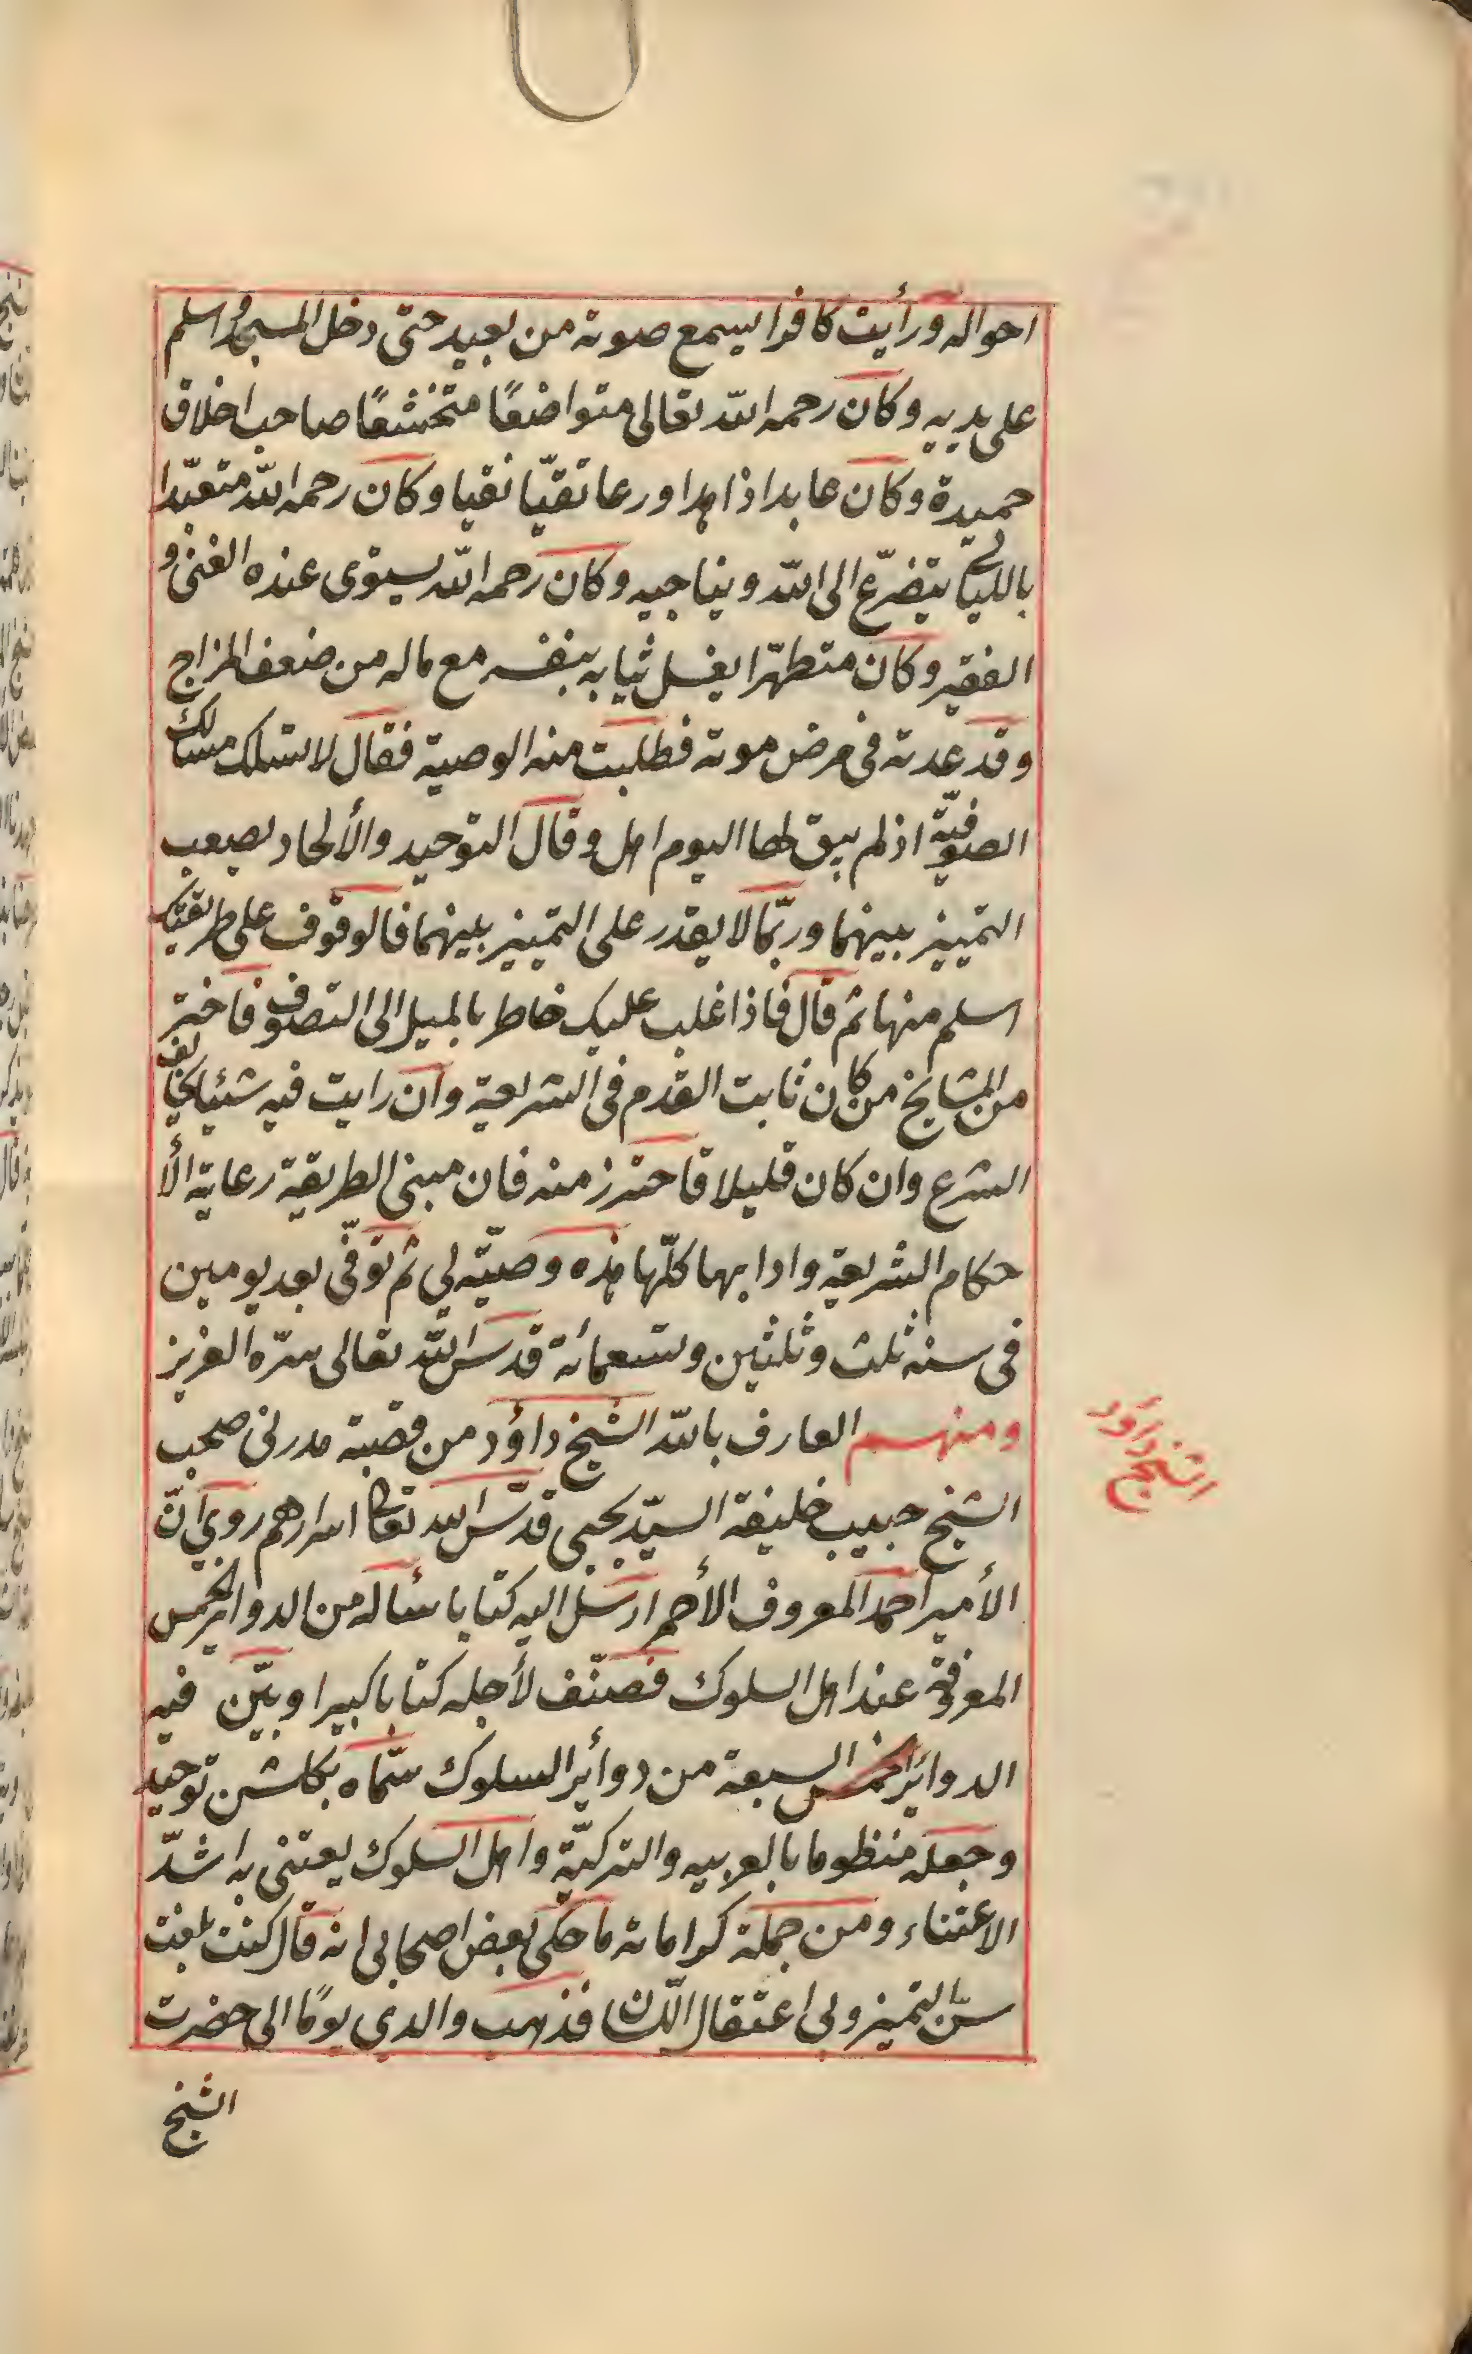 احواله ورأيت كافرا يسمع صوته من بعيد حتى دخل المسجد واسلم
على يديه وكان رحمه الله تعالى متواضعًا متخشعًا صاحب اخلاق
حميدة وكان عابدا زاهدا ورعا تقيّا نقيا وكان رحمه الله متعبّدا
بالليالى يتضرّع الى الله ويناجيه وكان رحمه الله يستوى عنده الغنى و
الفقير وكان متطهّرا يغسل ثيابه بنفسه مع ماله من ضعف المزاج
وقد عدته فى مرض موته فطلبت منه الوصية فقال لا تسلك مسالك
الصوفيّة اذ لم يبق لها اليوم اهل وقال التوحيد والألحاد يصعب
التمييز بينهما وربّما لا يقدر على التمييز بينهما فالوقوف على طريقتك
اسلم منها ثم قال فاذا غلب عليك خاطر بالميل الى التصوف فاختر
من المشايخ من كان ثابت القدم فى الشريعة وان رايت فيه شيئا يخالف
الشرع وان كان قليلا فاحترز منه فان مبنى الطريقة رعاية الأ
حكام الشريعة وادابهما كلّها هذه وصيّته لي ثم توفّى بعد يومين
فى سنه ثلث وثلثين وتسعمائة قدس الله تعالى سرّه العزيز
ومنهم العارف بالله الشيخ داؤد من قصبة مدرنى صحب
الشيخ حبيب خليفة السيّد يحيى قدّس الله تعالى اسرارهم روي انّ
الأمير احمد المعروف الأحمر ارسل اليه كتابا سأله من الدوائر الخمس
المعرفة عند اهل السلوك فصنّف لأجله كتابا كبيرا وبيّن فيه
الدوائر الخمس السبعة من دوائر السلوك سمّاه بكلشن توحيد
وجعله منظوما بالعربيه والتركيّة واهل السلوك يعتنى به اشدّ
الاعتناء ومن جملة كراماته ما حكى بعض اصحابى انه قال كنت بلغت
سنّ التميز ولى اعتقال اللّسان فذهب والدي يومًا الى حضرت
الشيخ
الشيخ داؤد